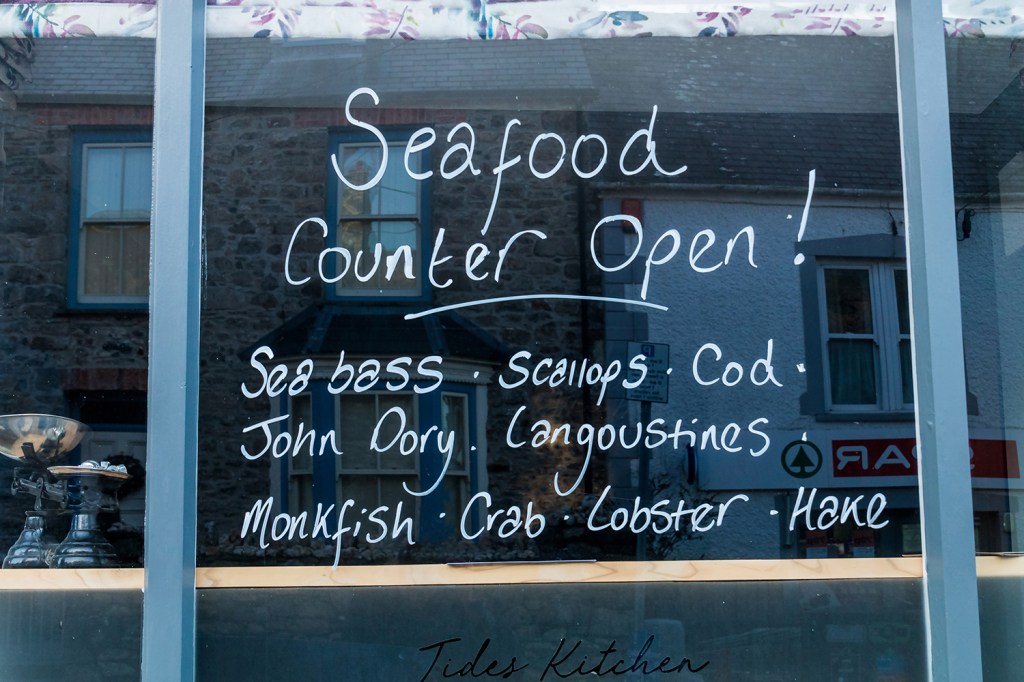 Seafood
Counter Open!
Sea bass · Scallops · Cod ·
John Dory . Langoustines .
Monkfish · Crab · Lobster · Hake
SPAR
Tides Kitchen